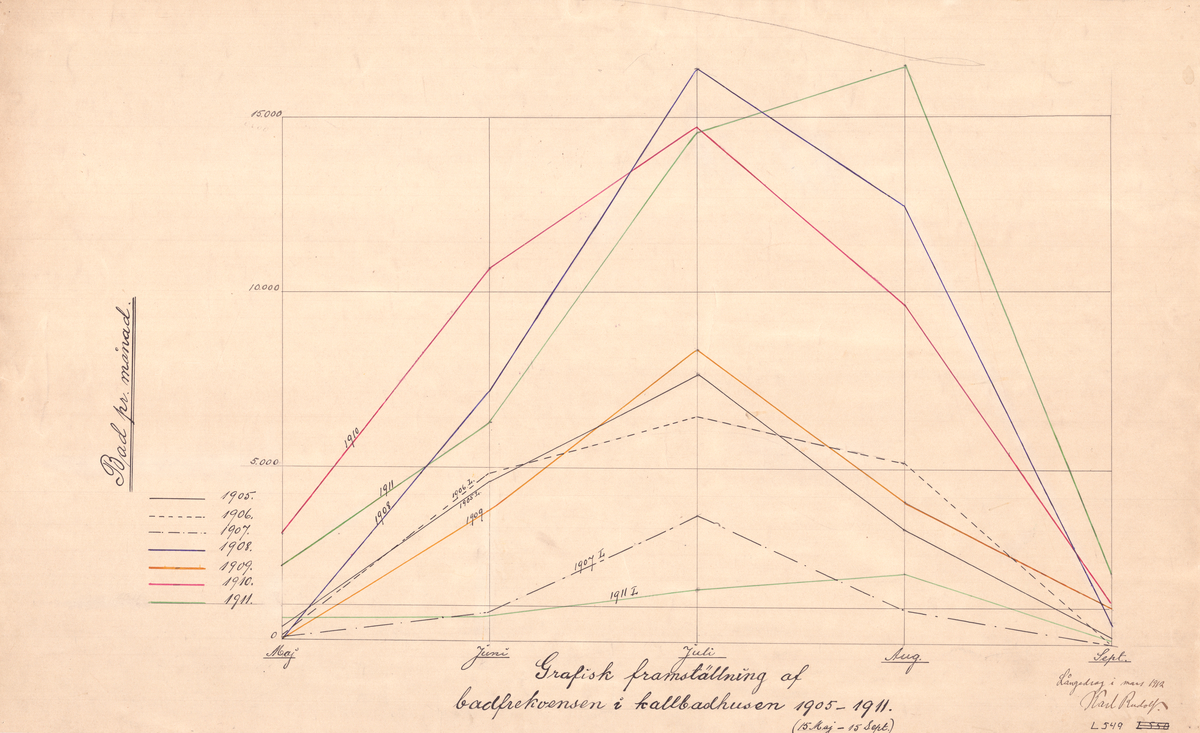 15.000
10.000
5.000
0
Bad pr. månad.
1910
1911
1908
1906 L.
1905 L.
1909
1907 L
1911 L
1905.
1906.
1907.
1908.
1909.
1910.
1911.
Maj
Juni
Juli
Aug.
Sept.
Grafisk framställning af
badfrekvensen i kallbadhusen 1905-1911.
(15 Maj - 15 Sept.)
Långedrag i mars 1912
Karl Rudolf
L 549